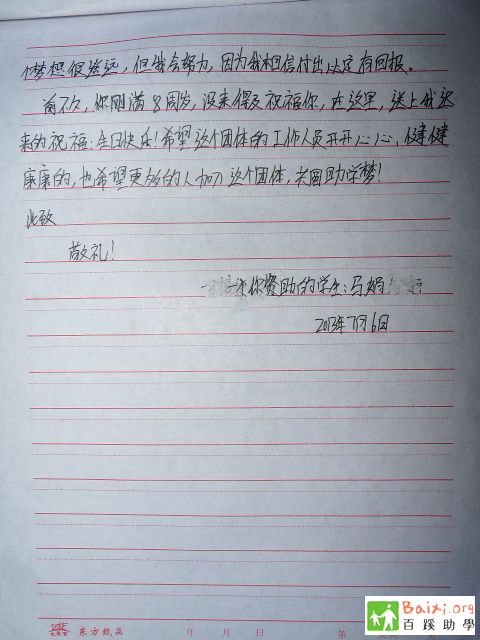 个梦想很遥远，但我会努力，因为我相信付出必定有回报。
前不久，你刚满8周岁，没来得及祝福你，在这里，送上我迟
来的祝福：生日快乐！希望这个团体的工作人员开开心心、健健
康康的，也希望更多的人加入这个团体，共圆助学梦！
此致
敬礼！
你资助的学生：马娟
2013年7月6日
东方纸品
年 月 日
第
Baixi.org
百蹊助學